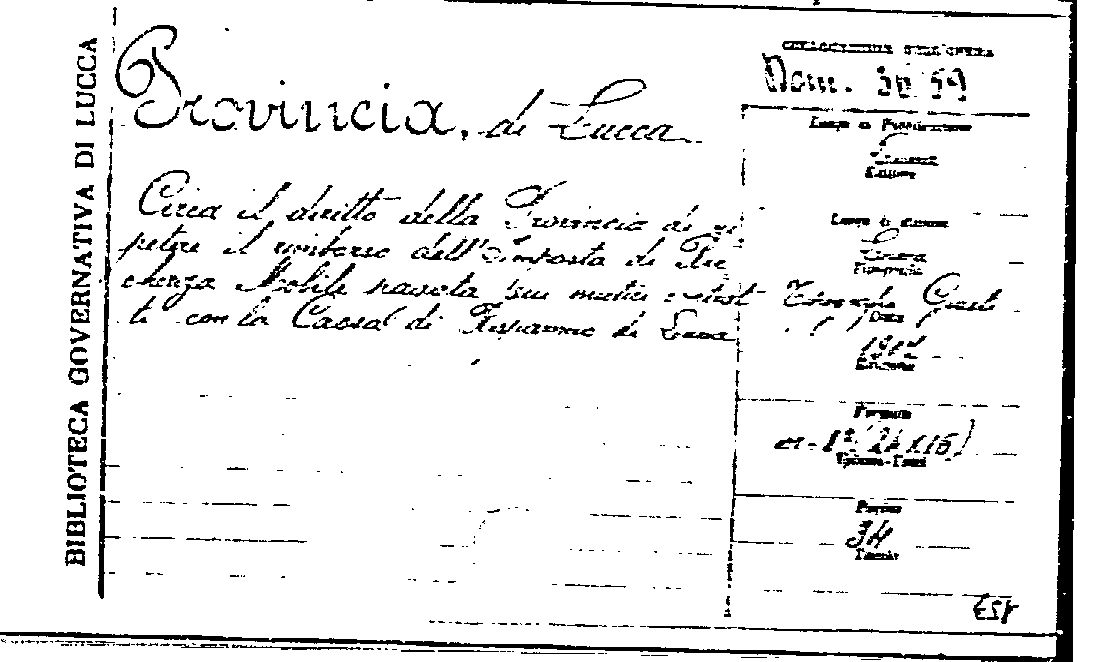 BIBLIOTECA GOVERNATIVA DI LUCCA
Provincia, di Lucca
Circa il diritto della Provincia di ri
petere il rimborso dell'Imposta di Ric
chezza Mobile pagata sui mutui
ti con la Cassa di Risparmio di Lucca
COLLOCAZIONE DELL'OPERA
Luogo di Pubblicazione
Lucca
Editore
Luogo di Stampa
Lucca
Tipografia
Tipografia Giusti
Data
Edizione
Formato
Pagine
34
Tavole